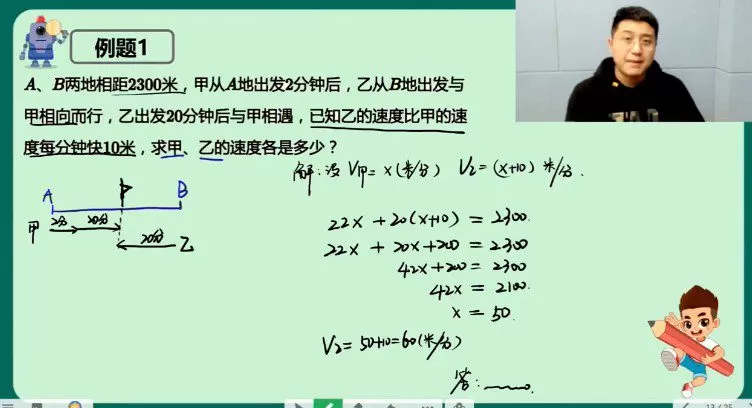 例题1
A、B两地相距2300米，甲从A地出发2分钟后，乙从B地出发与
甲相向而行，乙出发20分钟后与甲相遇，已知乙的速度比甲的速
度每分钟快10米，求甲、乙的速度各是多少？
解：设 V甲 = x (米/分) V乙 = (x+10) 米/分.
A B
2分 20分
甲
20分 乙
22x + 20(x+10) = 2300.
22x + 20x+200 = 2300
42x+200 = 2300
42x = 2100.
x = 50.
V乙 = 50+10=60(米/分)
答：
13 / 25